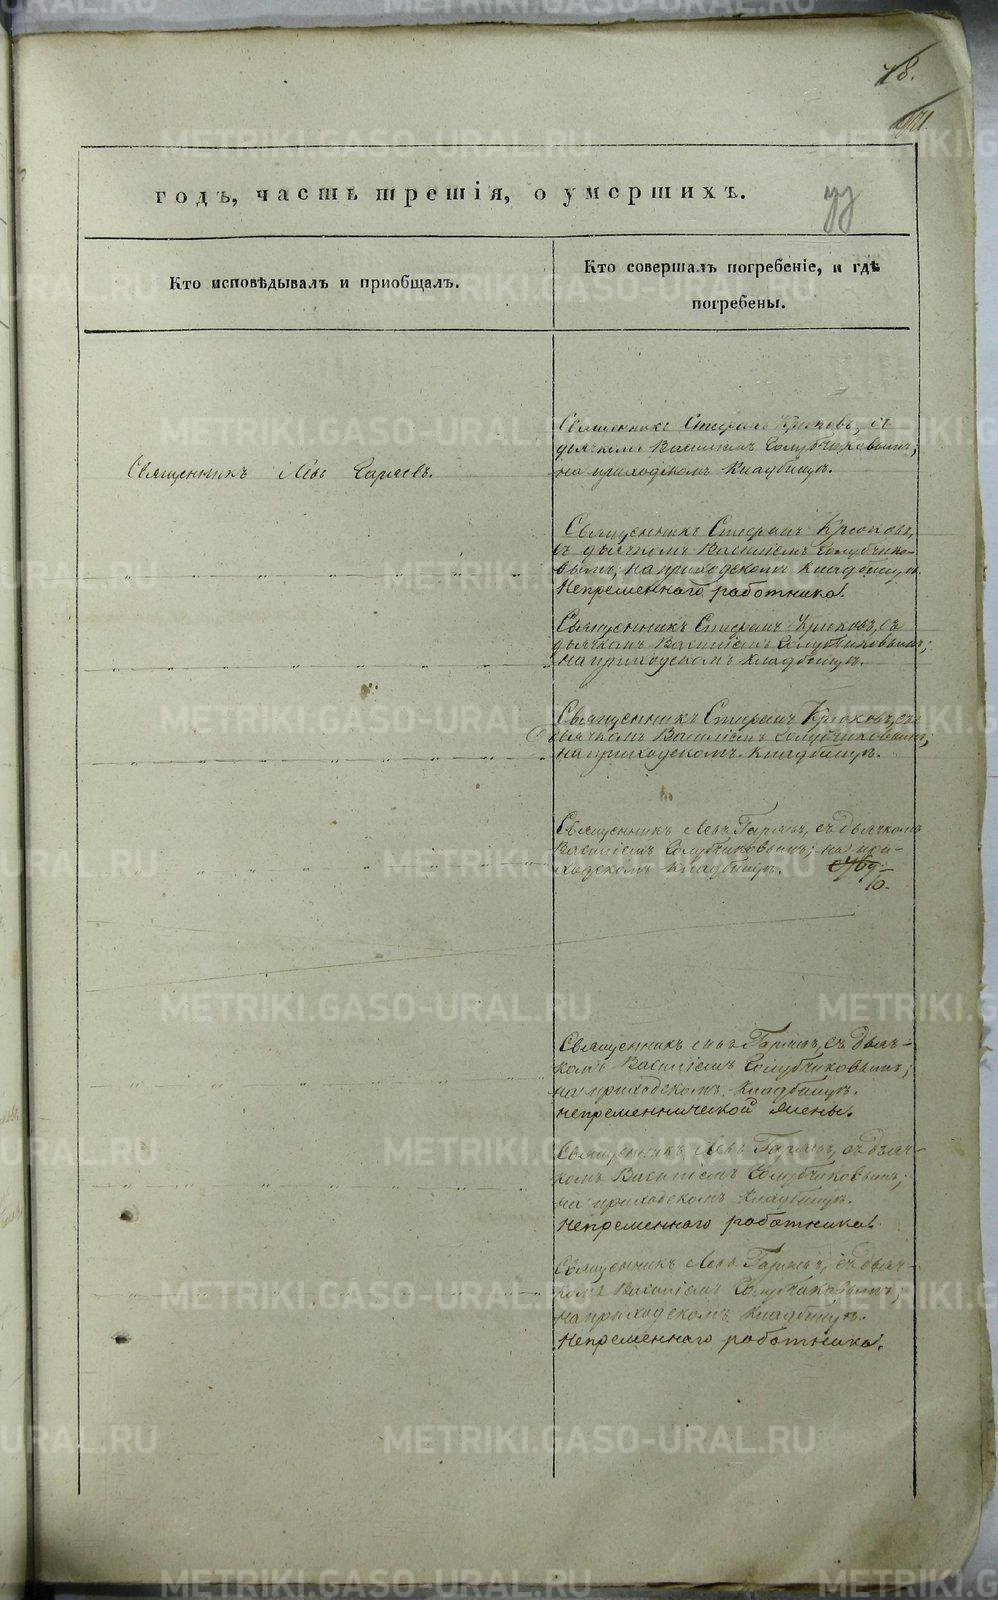 78.
годъ, часть третія, о умершихъ.
Кто исповѣдывалъ и приобщалъ.
Кто совершалъ погребеніе, и гдѣ
погребены.
Священникъ Стефанъ Крюковъ, съ
дьячкомъ Василіемъ Голубчиковымъ;
на приходскомъ кладбищѣ.
Священникъ Левъ Гаряевъ.
Священникъ Стефанъ Крюковъ,
съ дьячкомъ Василіемъ Голубчико-
вымъ; на приходскомъ кладбищѣ.
Непременнаго работника.
Священникъ Стефанъ Крюковъ, съ
дьячкомъ Василіемъ Голубчиковымъ;
на приходскомъ кладбищѣ.
Священникъ Стефанъ Крюковъ, съ
дьячкомъ Василіемъ Голубчиковымъ;
на приходскомъ кладбищѣ.
Священникъ Левъ Гаряевъ, съ дьячкомъ
Василіемъ Голубчиковымъ; на при-
ходскомъ кладбищѣ.
Священникъ Левъ Гаряевъ, съ дьяч-
комъ Василіемъ Голубчиковымъ;
на приходскомъ кладбищѣ.
непременнической жены.
Священникъ Левъ Гаряевъ, съ дьяч-
комъ Василіемъ Голубчиковымъ;
на приходскомъ кладбищѣ.
Непременнаго работника.
Священникъ Левъ Гаряевъ, съ дьяч-
комъ Василіемъ Голубчиковымъ;
на приходскомъ кладбищѣ.
Непременнаго работника.
METRIKI.GASO-URAL.RU